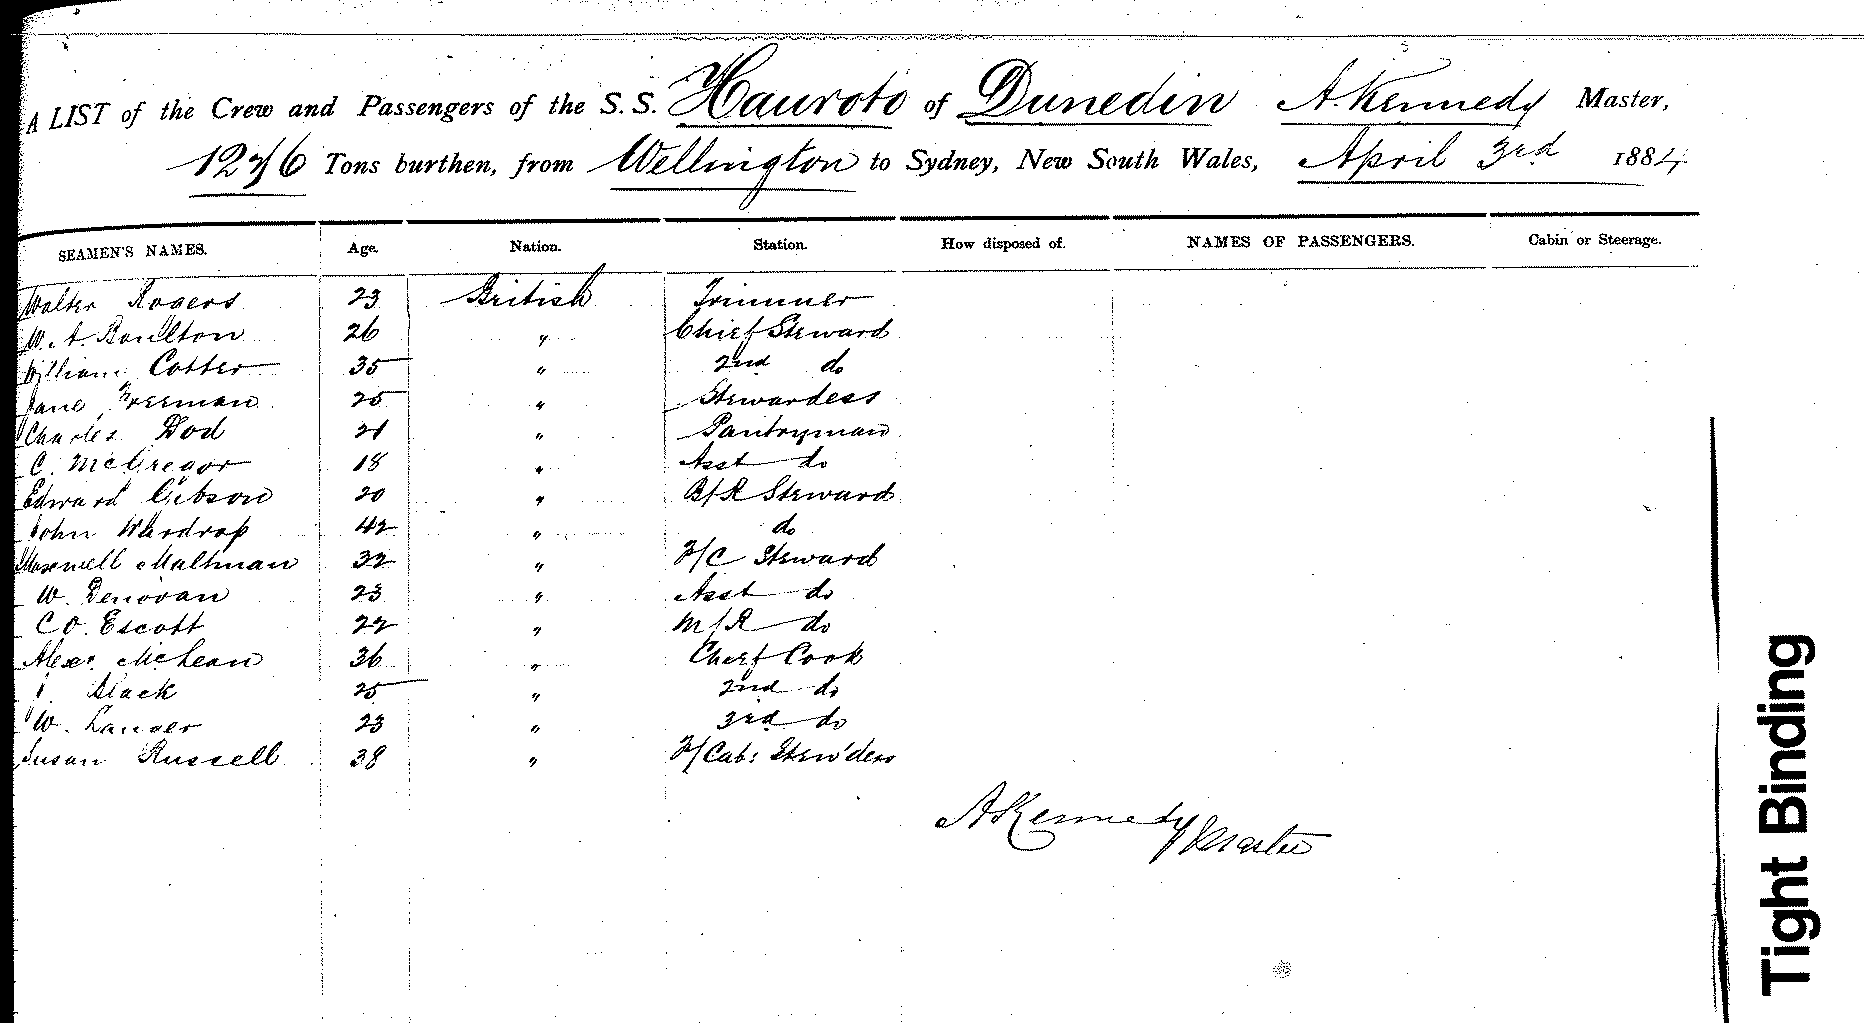 A LIST of the Crew and Passengers of the S.S. Hauroto of Dunedin A. Kennedy Master,
1276 Tons burthen, from Wellington to Sydney, New South Wales, April 3rd 1884
SEAMEN'S NAMES. Age. Nation. Station. How disposed of. NAMES OF PASSENGERS. Cabin or Steerage.
Walter Rogers 23 British Trimmer
W. A. Boulton 26 " Chief Steward
William Cotter 35 " 2nd do
Jane Freeman 25 " Stewardess
Charles Dod 21 " Pantryman
C. McGregor 18 " Asst do
Edward Gibson 20 " B/R Steward
John Wardrop 42 " do
Maxwell Maltman 32 " F/C Steward
W. Donovan 23 " Asst do
C O. Escott 22 " M/R do
Alexr McLean 36 " Chief Cook
Slack 25 " 2nd do
W. 23 " 3rd do
Susan Russell 38 " F/Cab: Stew'dess
A Kennedy Master
Tight Binding